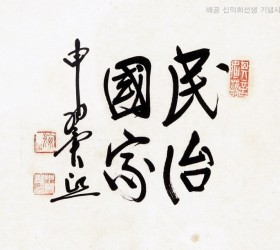 해공 신익희선생 기념사
民治
國家
申翼熙